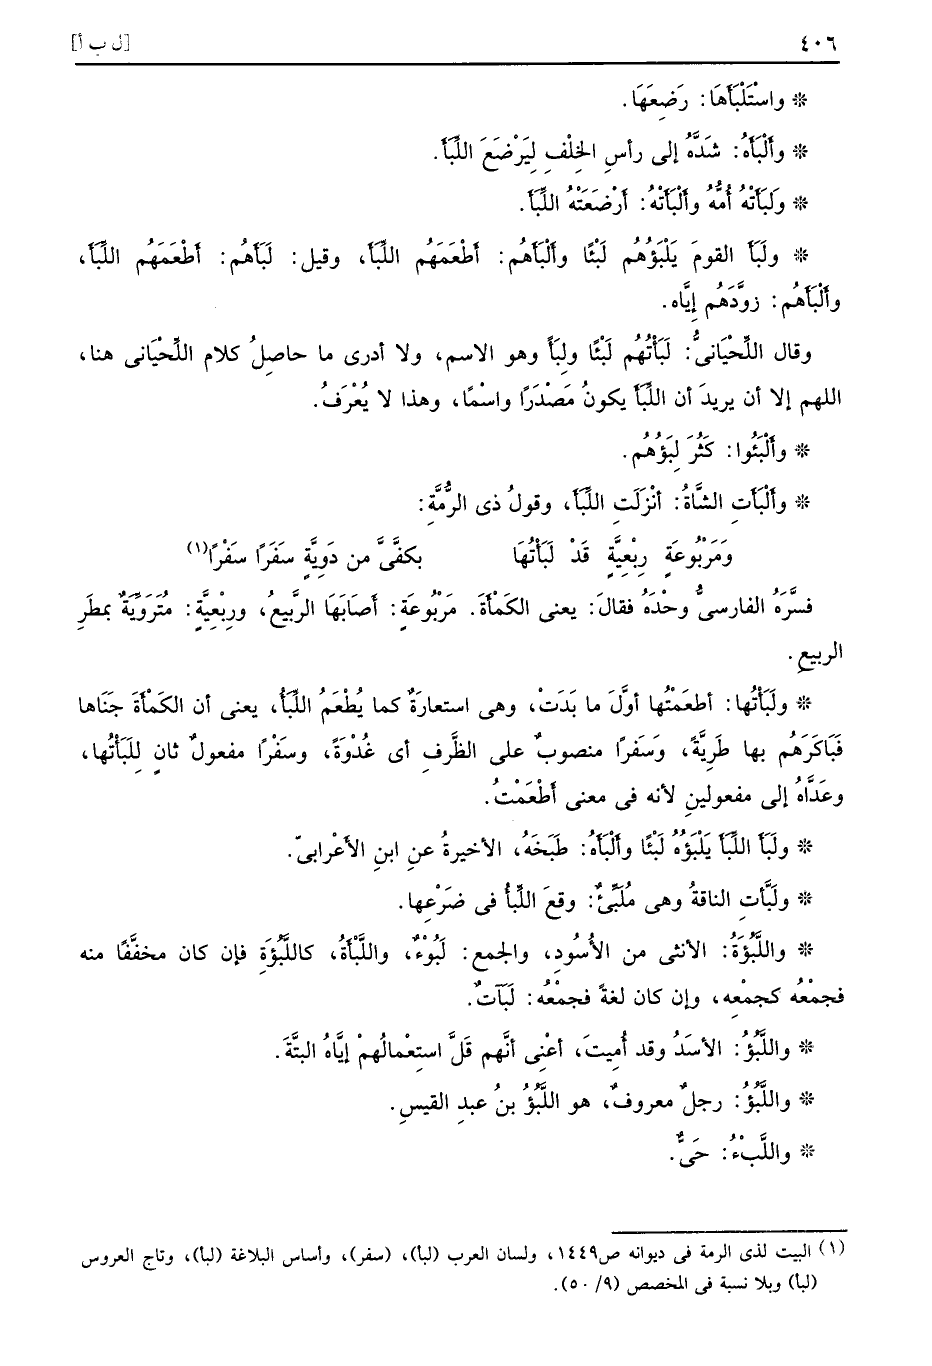 ٤٠٦
[ل ب أ]
* واسْتَلْبَأَهَا: رَضِعَهَا.
* وأَلْبَأَهُ: شَدَّهُ إلى رأسِ الخِلْفِ لِيَرْضَعَ اللِّبَأَ.
* ولَبَأَتْهُ أُمُّهُ وأَلْبَأَتْهُ: أَرْضَعَتْهُ اللِّبَأَ.
* ولَبَأَ القومَ يَلْبَؤُهُم لَبْئًا وأَلْبَأَهُم: أَطْعَمَهُم اللِّبَأَ، وقيل: لَبَأَهُم: أَطْعَمَهُم اللِّبَأَ،
وأَلْبَأَهُم: زوَّدَهُم إيَّاه.
وقال اللِّحْيَانىُّ: لَبَأْتُهُم لَبْئًا ولِبَأً وهو الاسم، ولا أدرى ما حاصِلُ كلام اللِّحْيَانى هنا،
اللهم إلا أن يريدَ أن اللِّبَأَ يكونُ مَصْدَرًا واسْمًا، وهذا لا يُعْرَفُ.
* وأَلْبَئُوا: كَثُرَ لِبَؤُهُم.
* وأَلْبَأَتِ الشَّاةُ: أنْزَلَتِ اللِّبَأَ، وقولُ ذى الرُّمَّةِ:
وَمَرْبُوعَةٍ رِبْعِيَّةٍ قَدْ لَبَأْتُهَا بكفَّىَّ من دَوِيَّةٍ سَفَرًا سَفْرًا(١)
فسَّرَهُ الفارسىُّ وحْدَهُ فقالَ: يعنى الكَمْأَةَ. مَرْبُوعَةٍ: أصَابَهَا الرَّبيعُ، ورِبْعِيَّةٍ: مُتَرَوِّيَةٌ بمطَرِ
الربيعِ.
* ولَبَأْتُها: أطعَمْتُها أوَّلَ ما بَدَتْ، وهى استعارَةٌ كما يُطْعَمُ اللِّبَأُ، يعنى أن الكَمْأَةَ جَنَاها
فَبَاكَرَهُم بها طَرِيَّةً، وَسَفَرًا منصوبٌ على الظَّرفِ أى غُدْوَةً، وسَفْرًا مفعولٌ ثانٍ لِلَبَأْتُها،
وعَدَّاهُ إلى مفعولينِ لأنه فى معنى أَطْعَمْتُ.
* ولَبَأَ اللِّبَأَ يَلْبَؤُهُ لَبْئًا وأَلْبَأَهُ: طَبَخَهُ، الأخيرةُ عنِ ابنِ الأَعْرابىّ.
* ولَبَّأَتِ الناقةُ وهى مُلَبِّئٌ: وقعَ اللِّبأُ فى ضَرْعِها.
* واللَّبُؤَةُ: الأنثى من الأُسُودِ، والجمع: لَبُوْءٌ، واللَّبْأَةُ، كاللَّبُؤَةِ فإن كان مخفَّفًا منه
فجمْعُه كجمْعِه، وإن كان لغةً فجمْعُه: لَبَآتٌ.
* واللَّبُؤُ: الأسَدُ وقد أُمِيتَ، أعْنِى أنَّهم قَلَّ استِعْمالُهمْ إيَّاهُ البتَّةَ.
* واللَّبُؤُ: رجلٌ معروفٌ، هو اللَّبُؤُ بنُ عبدِ القيسِ.
* واللَّبْءُ: حَىٌّ.
(١) البيت لذى الرمة فى ديوانه ص١٤٤٩، ولسان العرب (لبأ)، (سفر)، وأساس البلاغة (لبأ)، وتاج العروس
(لبأ) وبلا نسبة فى المخصص (٩/ ٥٠).